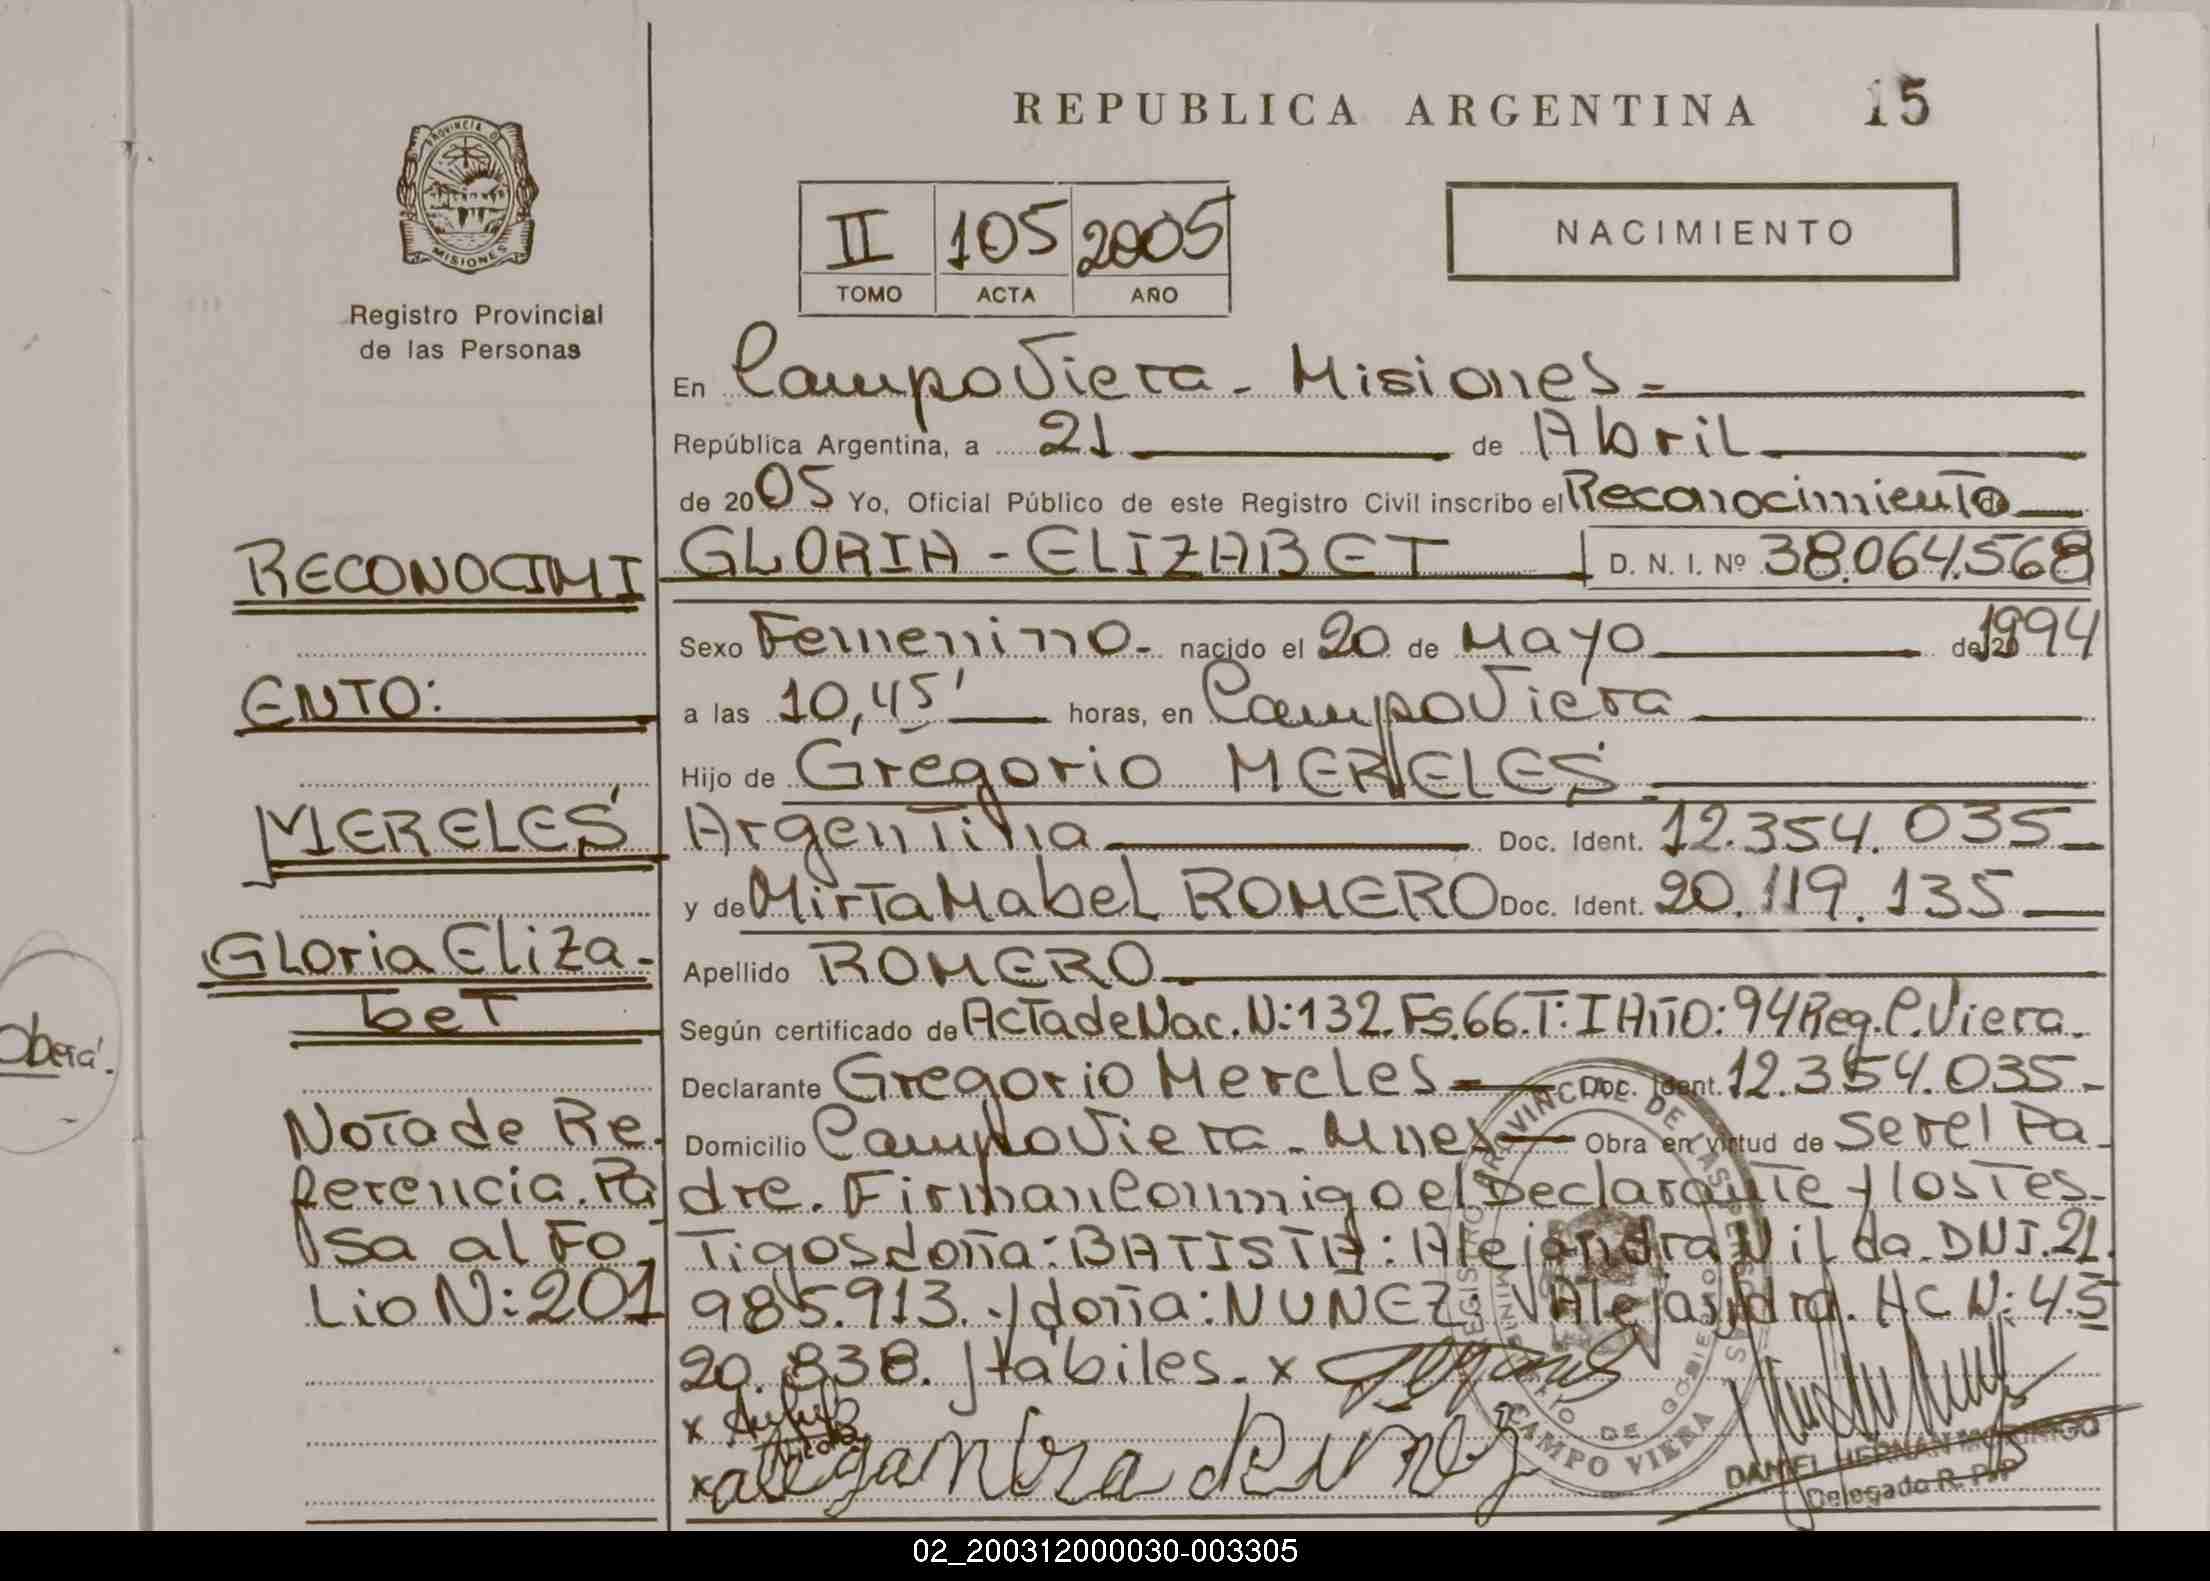 REPUBLICA ARGENTINA 15
PROVINCIA DE
MISIONES
Registro Provincial
de las Personas
II 105 2005
TOMO ACTA AÑO
NACIMIENTO
En Campo Viera - Misiones =
República Argentina, a 21 de Abril
de 2005 Yo, Oficial Público de este Registro Civil inscribo el Reconocimiento
GLORIA - ELIZABET D. N. I. Nº 38.064.568
Sexo Femenino - nacido el 20 de Mayo de 1994
a las 10,45' horas, en Campo Viera
Hijo de Gregorio MERELES
Argentina Doc. Ident. 12.354.035
y de Mirta Mabel ROMERO Doc. Ident. 20.119.135
Apellido ROMERO
Según certificado de Acta de Nac. N:132. Fs.66. T: I Año: 94 Reg. C. Viera.
Declarante Gregorio Mereles Doc. Ident. 12.354.035 -
Domicilio Campo Viera - Mnes Obra en virtud de ser el Pa-
dre. Firman Conmigo el Declarante y los Tes-
Tigos doña: BATISTA: Alejandra Nilda. DNI. 21.
985.913. y doña: NUÑEZ Alejandra. HC N: 4.5
20.838. Habiles. x
x
x alegandra nunez
RECONOCIMI
ENTO:
MERELES
Gloria Eliza-
beT
Nota de Re-
ferencia. Pa
sa al Fo
Lio N: 201
Obera'.
REGISTRO PROVINCIAL DE LAS PERSONAS
MINISTERIO DE GOBIERNO
CAMPO VIERA
DANIEL HERNAN MORINIGO
Delegado R. P. P
02_200312000030-003305